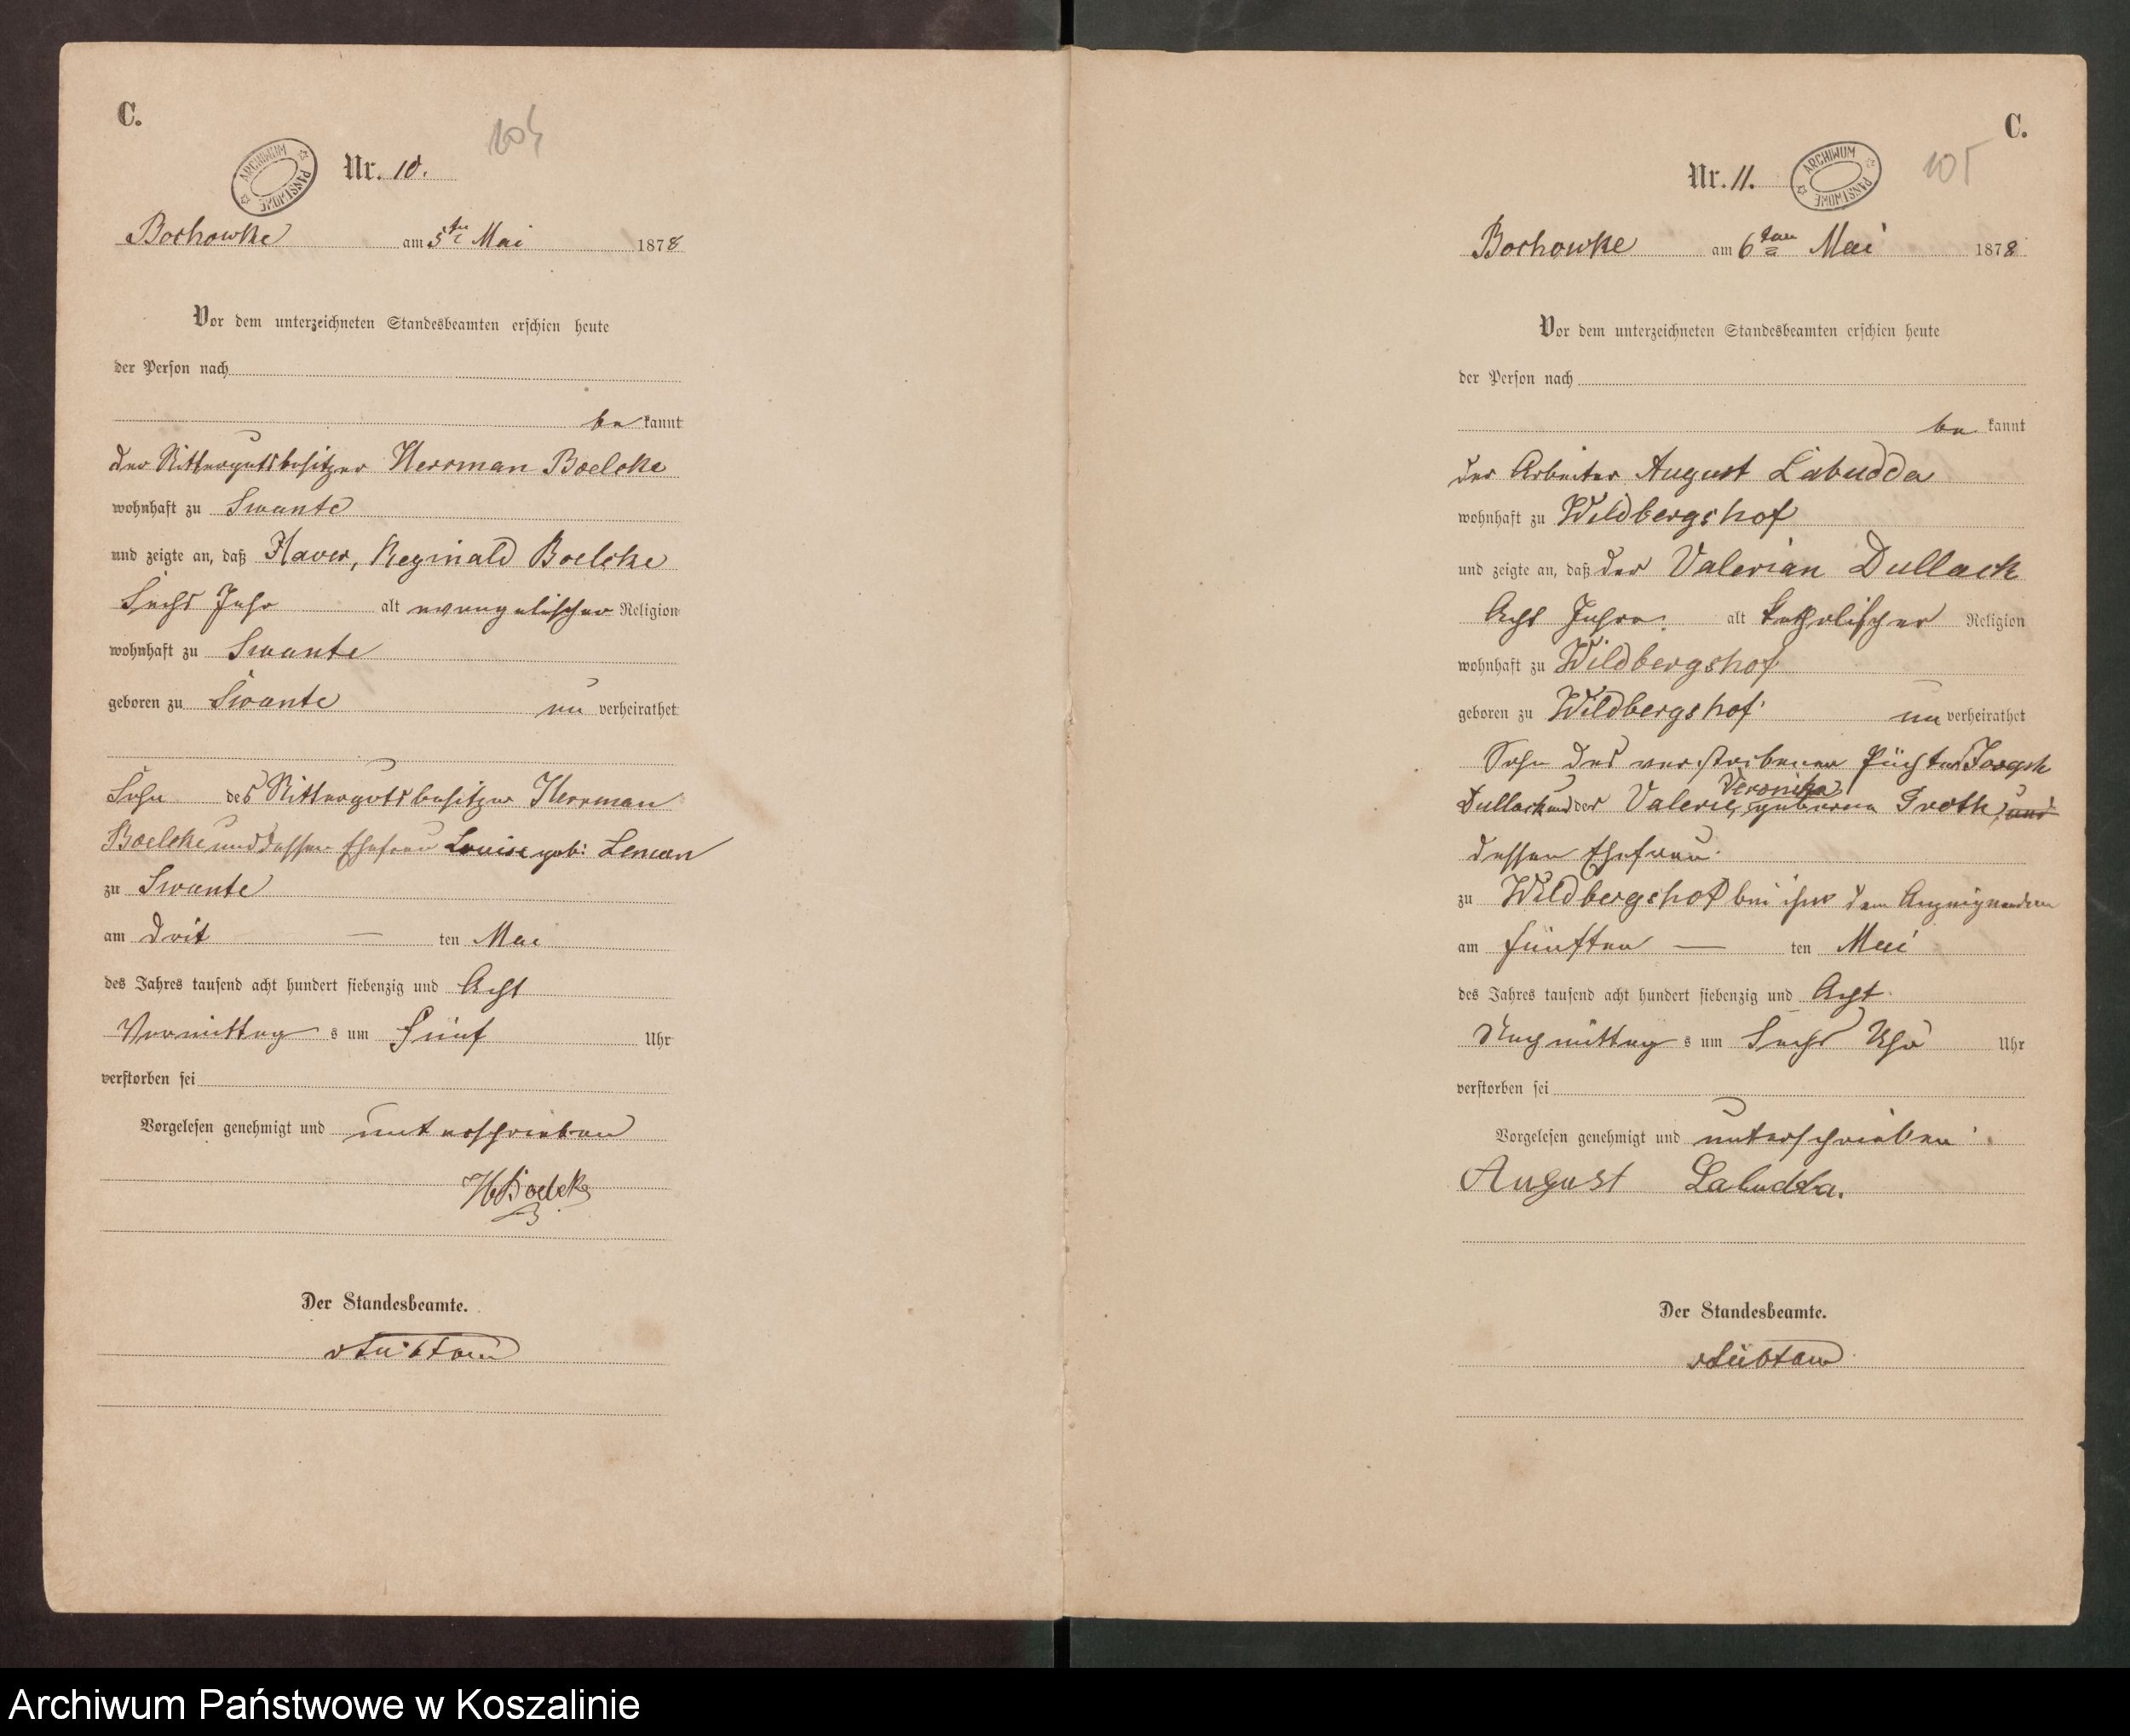 C.
104
ARCHIWUM PAŃSTWOWE
Nr. 10.
Bochowke am 5ten Mai 1878
Vor dem unterzeichneten Standesbeamten erschien heute
der Person nach
be kannt
der Rittergutsbesitzer Herrman Boelcke
wohnhaft zu Swante
und zeigte an, daß Xaver, Reginald Boelcke
Sechs Jahr alt evangelischer Religion
wohnhaft zu Swante
geboren zu Swante un verheirathet
Sohn des Rittergutsbesitzer Herrman
Boelcke und dessen Ehefrau Louise geb: Leman
zu Swante
am drit — ten Mai
des Jahres tausend acht hundert siebenzig und Acht
Vormittag s um Fünf Uhr
verstorben sei
Vorgelesen genehmigt und unterschrieben
HBoelcke
Der Standesbeamte.
C.
105
ARCHIWUM PAŃSTWOWE
Nr. 11.
Bochowke am 6ten Mai 1878
Vor dem unterzeichneten Standesbeamten erschien heute
der Person nach
be kannt
der Arbeiter August Labudda
wohnhaft zu Wildbergshof
und zeigte an, daß der Valerian Dullack
Acht Jahre alt katholischer Religion
wohnhaft zu Wildbergshof
geboren zu Wildbergshof un verheirathet
Sohn des verstorbenen Pächters Joseph
Veronika
Dullack und der Valerie, geboren Groth, und
dessen Ehefrau.
zu Wildbergshof bei ihm dem Anzeigenden
am fünften — ten Mai
des Jahres tausend acht hundert siebenzig und Acht
Nachmittag s um Sechs Uhr Uhr
verstorben sei
Vorgelesen genehmigt und unterschrieben
August Labudda.
Der Standesbeamte.
Archiwum Państwowe w Koszalinie